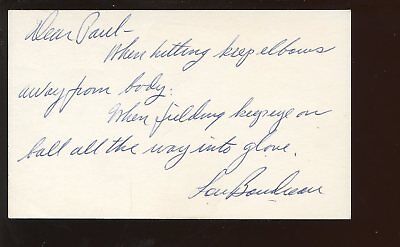 Dear Paul-
When hitting keep elbows
away from body.
When fielding keep eye on
ball all the way into glove.
Lou Boudreau